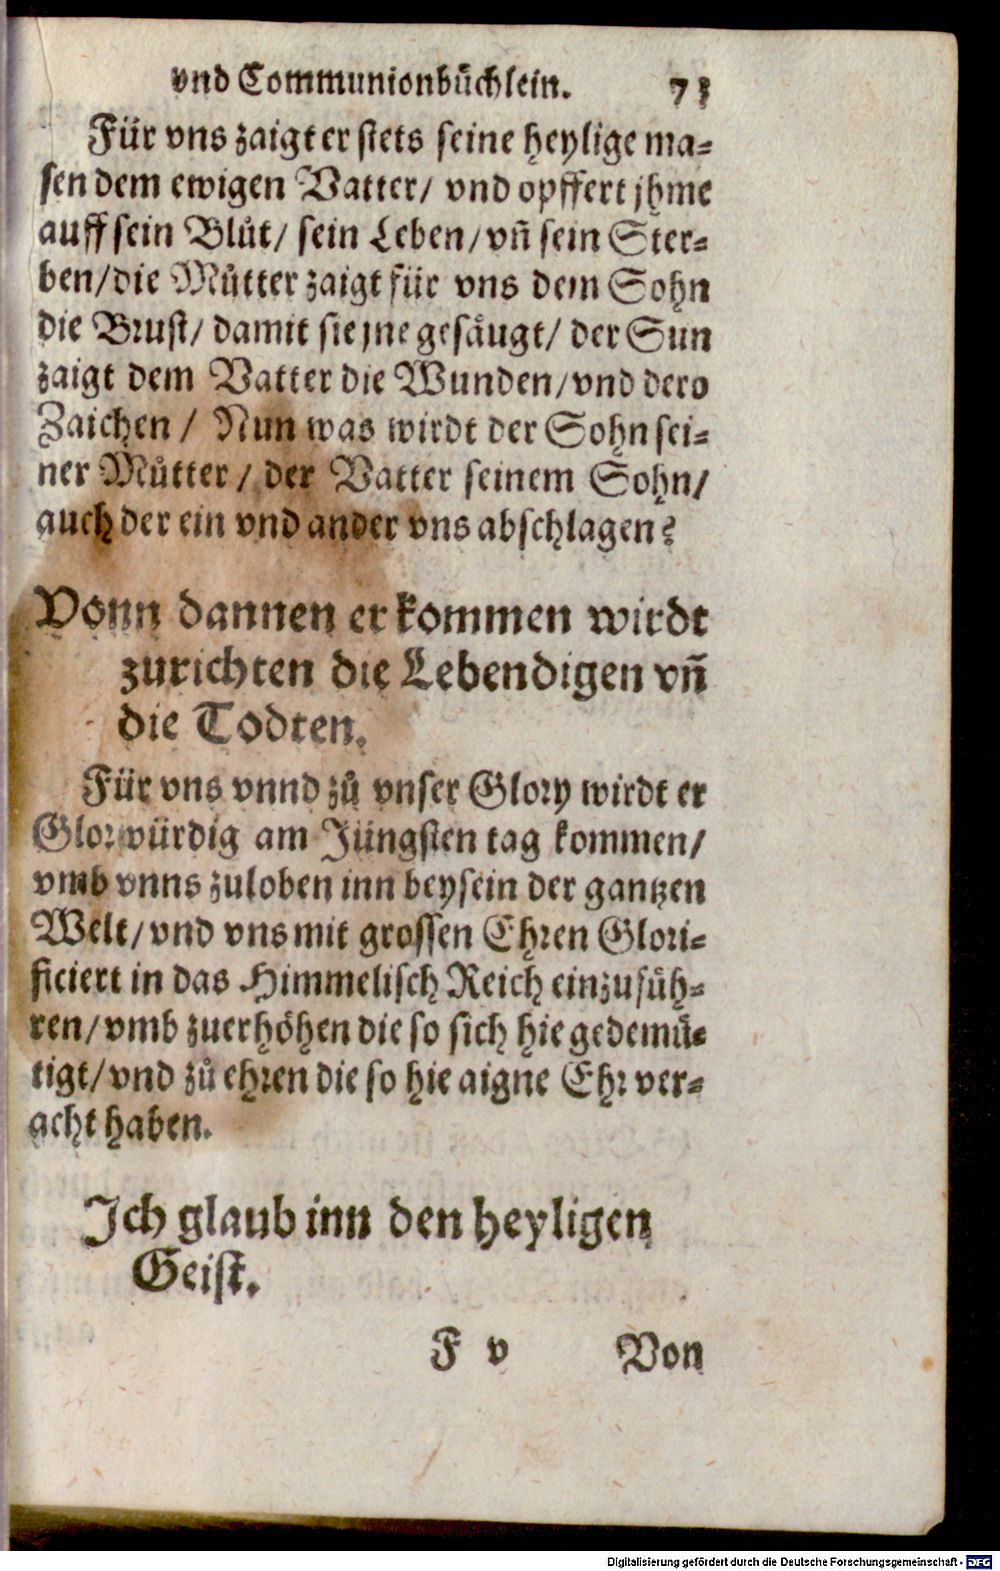 vnd Communionbüchlein. 73
Für vns zaigt er stets seine heylige ma⸗
sen dem ewigen Vatter/ vnd opffert jhme
auff sein Blůt/ sein Leben/ vñ sein Ster⸗
ben/ die Můtter zaigt für vns dem Sohn
die Brust/ damit sie jne gesäugt/ der Sun
zaigt dem Vatter die Wunden/ vnd dero
Zaichen / Nun was wirdt der Sohn sei⸗
ner Můtter / der Vatter seinem Sohn/
auch der ein vnd ander vns abschlagen?
Vonn dannen er kommen wirdt
zurichten die Lebendigen vñ
die Todten.
Für vns vnnd zů vnser Glory wirdt er
Glorwürdig am Jüngsten tag kommen/
vmb vnns zuloben inn beysein der gantzen
Welt/ vnd vns mit grossen Ehren Glori⸗
ficiert in das Himmelisch Reich einzufüh⸗
ren/ vmb zuerhöhen die so sich hie gedemü⸗
tigt/ vnd zů ehren die so hie aigne Ehr ver⸗
acht haben.
Ich glaub inn den heyligen
Geist.
F v Von
Digitalisierung gefördert durch die Deutsche Forschungsgemeinschaft - DFG